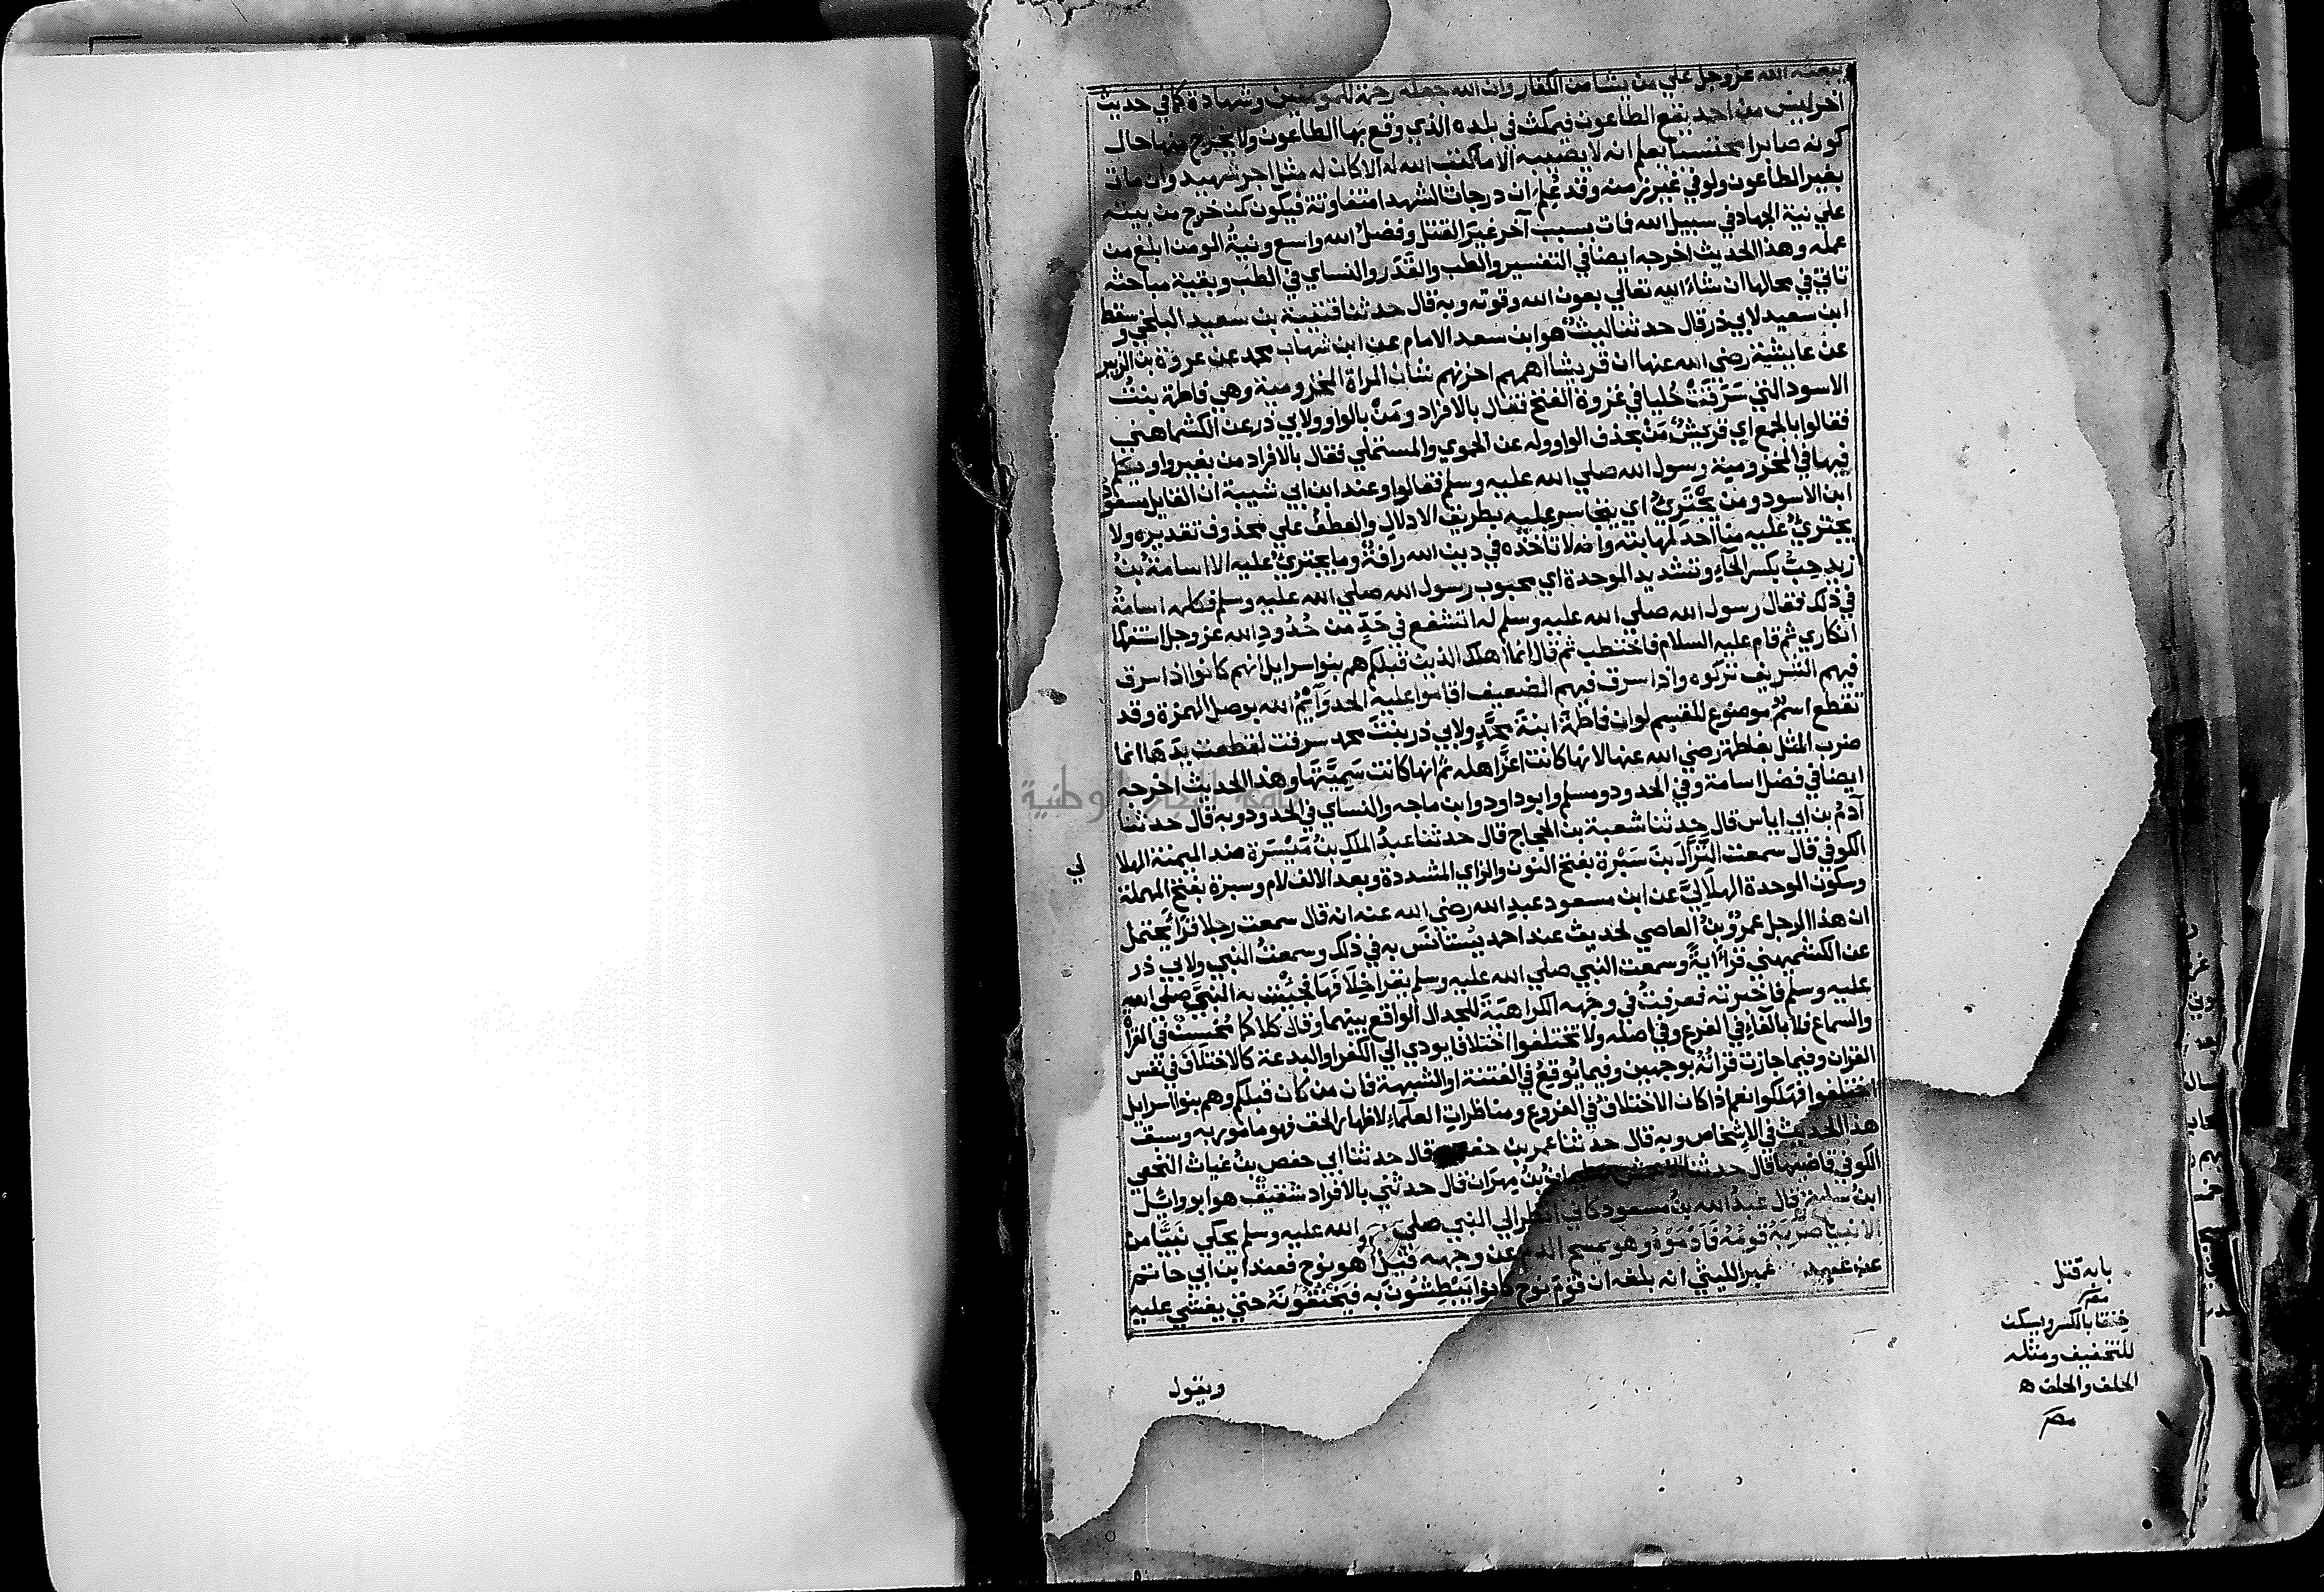 يبعثه الله عز وجل علي من يشا من الكفار وان الله جعله رحمة للمومنين وشهادة كما في حديث
اخر ليس من احد يقع الطاعون فيمكث في بلده الذي وقع بها الطاعون ولا يخرج منها حال
كونه صابرا محتسبا يعلم انه لا يصيبه الا ما كتب الله له الا كان له مثل اجر شهيد وان مات
بغير الطاعون ولو في غير زمنه وقد عُلِمَ ان درجات الشهدا متفاوتة فيكون كمن خرج من بيته
علي نية الجهاد في سبيل الله فمات بسبب آخر غيرَ القتل وفضلُ الله واسع ونيةُ المومن ابلغ من
عمله وهذا الحديث اخرجه ايضا في التفسير والطب والقَدَر والنساي في الطب وبقية مباحثه
تاتي في محالها ان شاءَ الله تعالي بعون الله وقوته وبه قال حدثنا قتيبة بن سعيد البلخي وسقط
ابن سعيد لابي ذر قال حدثنا ليثٌ هو ابن سعد الامام عن ابن شهاب محمد عن عروة بن الزبير
عن عايشة رضي الله عنها ان قريشا اهمهم احزنهم شان المراة المخزومية وهي فاطمة بنتُ
الاسود التي سَرَقَتْ حُليا في غزوة الفتح فقال بالافراد ومَنْ بالواو ولابي ذر عن الكشماهني
فقالوا بالجمع اي قريشٌ مَن بحذف الواو وله عن الحموي والمستملي فقال بالافراد من بغير واو يكلم
فيها في المخزومية رسول الله صلي الله عليه وسلم فقالوا وعند ابن ابي شيبة ان القايل مسعود
ابن الاسود ومن يَجْتَرِيُ اي يتجاسر عليه بطريق الادلال والعطفُ علي محذوف تقديره ولا
يجتريُ عليه منا احد لمهابته وانه لا تاخذه في دين الله رافةٌ وما يجتريُ عليه الا اسامةُ بنُ
زيد حِبُّ بكسر الحاءِ وتشديد الموحدة اي محبوب رسول الله صلي الله عليه وسلم فكلمه اسامةُ
في ذلك فقال رسول الله صلي الله عليه وسلم له اتشفع في حَدٍّ من حُدُودِ الله عز وجل استفهام
انكاري ثم قام عليه السلام فاختطب ثم قال انما اهلك الذين قبلكم هم بنو اسرايل انهم كانوا اذا سرق
فيهم الشريف تركوه واذا سرق فيهم الضعيف اقاموا عليه الحد وَأَيْمُ الله بوصل الهمزة وقد
تقطع اسمٌ موضوع للقسم لو ان فاطمةَ ابنةَ محمَّدٍ ولابي ذر بنتَ محمد سرقت لقطعت يدَهَا انما
ضرب المثل بفاطمة رضي الله عنها لانها كانت اعزَّ اهله ثم انها كانت سَمِيَّتَها وهذا الحديث اخرجه
ايضا في فضل اسامة وفي الحدود ومسلم وابو داود وابن ماجه والنساي في الحدود وبه قال حدثنا
آدم بن ابي اياس قال حدثنا شعبة بن الحجاج قال حدثنا عبدُ الملك بنُ مَيْسَرَة ضد الميمنة الهلالي
الكوفي قال سمعت النَّزَّالَ بنَ سَبْرة بفتح النون والزاي المشددة وبعد الالف لام وسبرة بفتح المهملة
وسكون الموحدة الهلاليَّ عن ابن مسعود عبد الله رضي الله عنه انه قال سمعت رجلا قرَاَ يحتمل
ان هذا الرجل عمرُو بنُ العاصي لحديث عند احمد يستانسَ به في ذلك وسمعتُ النبي ولابي ذر
عن الكشميهني قراَ ايةً وسمعت النبي صلي الله عليه وسلم يقرا خِلَافَهَا فجئْتُ به النبيَّ صلي الله
عليه وسلم فاخبرته فعرفتُ في وجهه الكراهيَةَ للجدال الواقع بينهما وقال كلا كما مُحْسِنٌ في القراة
والسماع فلا بالفاءِ في الفرع وفي اصله ولا تختلفوا اختلافا يودي الي الكفر او البدعة كالاختلاف في نفس
القران وفيما جازت قرائَتُه بوجهين وفيما يُوقِعُ في الفتنة او الشبهة فان من كان قبلكم وهم بنو اسرايل
اختلفوا فهلكوا نعم اذا كان الاختلافُ في الفروع ومناظراتِ العلماءِ لاظهار الحق فهو مامور به وسبق
هذا الحديث في الاشخاص وبه قال حدثنا عمر بن حفص قال حدثنا ابي حفص بنُ غياث النخعي
الكوفي قاضيها قال حدثنا الاعمش سليمان بنُ مِهرَان قال حدثني بالافراد شقيق هو ابو وايل
ابنُ سلمة قال عبدُ الله بنُ مسعود كاني انظر الي النبي صلي الله عليه وسلم يحكي نَبِيًّا من
الانبيا ضَرَبَهُ قومُهُ فَاَدْمَوْهُ وهو يمسح الدم عن وجهه قيل هو نوح فعند ابن ابي حاتم
عن عبيد بن عمير الليثي انه بلغه ان قومَ نوح كانوا يَبْطِشُونَ به فيَخْنُقُونَهُ حتي يغشي عليه
ويقول
بابه قتل
خنقا بالكسر ويسكن
للتخفيف ومثله
الحلف والحلف ه